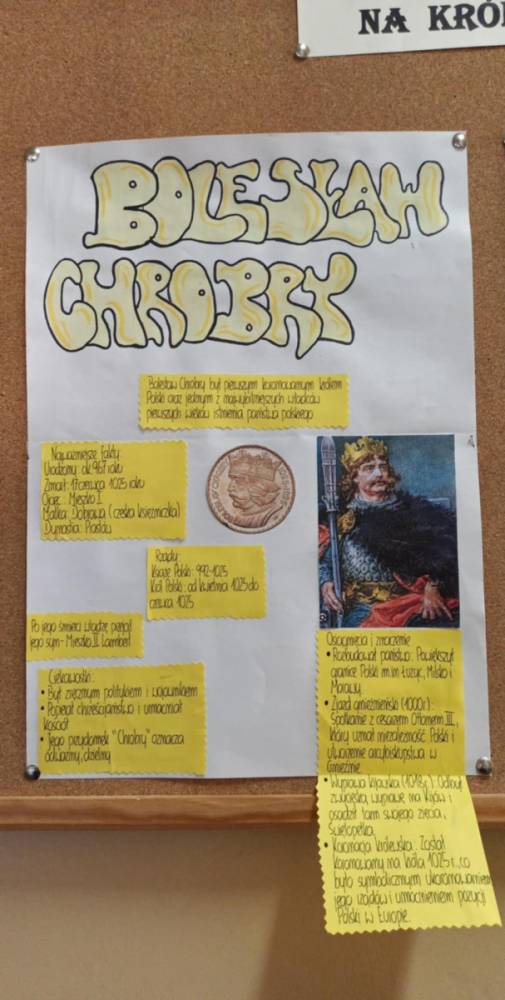 NA KRÓ
BOLESŁAW
CHROBRY
Bolesław Chrobry był pierwszym koronowanym królem
Polski oraz jednym z najwybitniejszych władców
pierwszych wieków istnienia państwa polskiego
Najważniejsze fakty
Urodzony: ok. 967 roku
Zmarł: 17 czerwca 1025 roku
Ojciec: Mieszko I
Matka: Dobrawa (czeska księżniczka)
Dynastia: Piastów
Rządy:
Książę Polski: 992-1025
Król Polski: od kwietnia 1025 do
czerwca 1025
Po jego śmierci władzę przejął
jego syn - Mieszko II Lambert
Ciekawostki:
• Był zręcznym politykiem i wojownikiem
• Popierał chrześcijaństwo i umacniał
kościół
• Jego przydomek "Chrobry" oznacza
odważny, dzielny
Osiągnięcia i znaczenie
• Rozbudował państwo: Powiększył
granice Polski m.in. Łużyc, Milsko i
Morawy.
• Zjazd gnieźnieński (1000r.):
Spotkanie z cesarzem Ottonem III,
który uznał niezależność Polski i
utworzenie arcybiskupstwa w
Gnieźnie.
• Wyprawa kijowska (1018r.): Odbył
zwycięską wyprawę na Kijów i
osadził tam swojego zięcia,
Świętopełka.
• Koronacja królewska: Został
koronowany na króla 1025 r., co
było symbolicznym ukoronowaniem
jego rządów i umocnieniem pozycji
Polski w Europie.